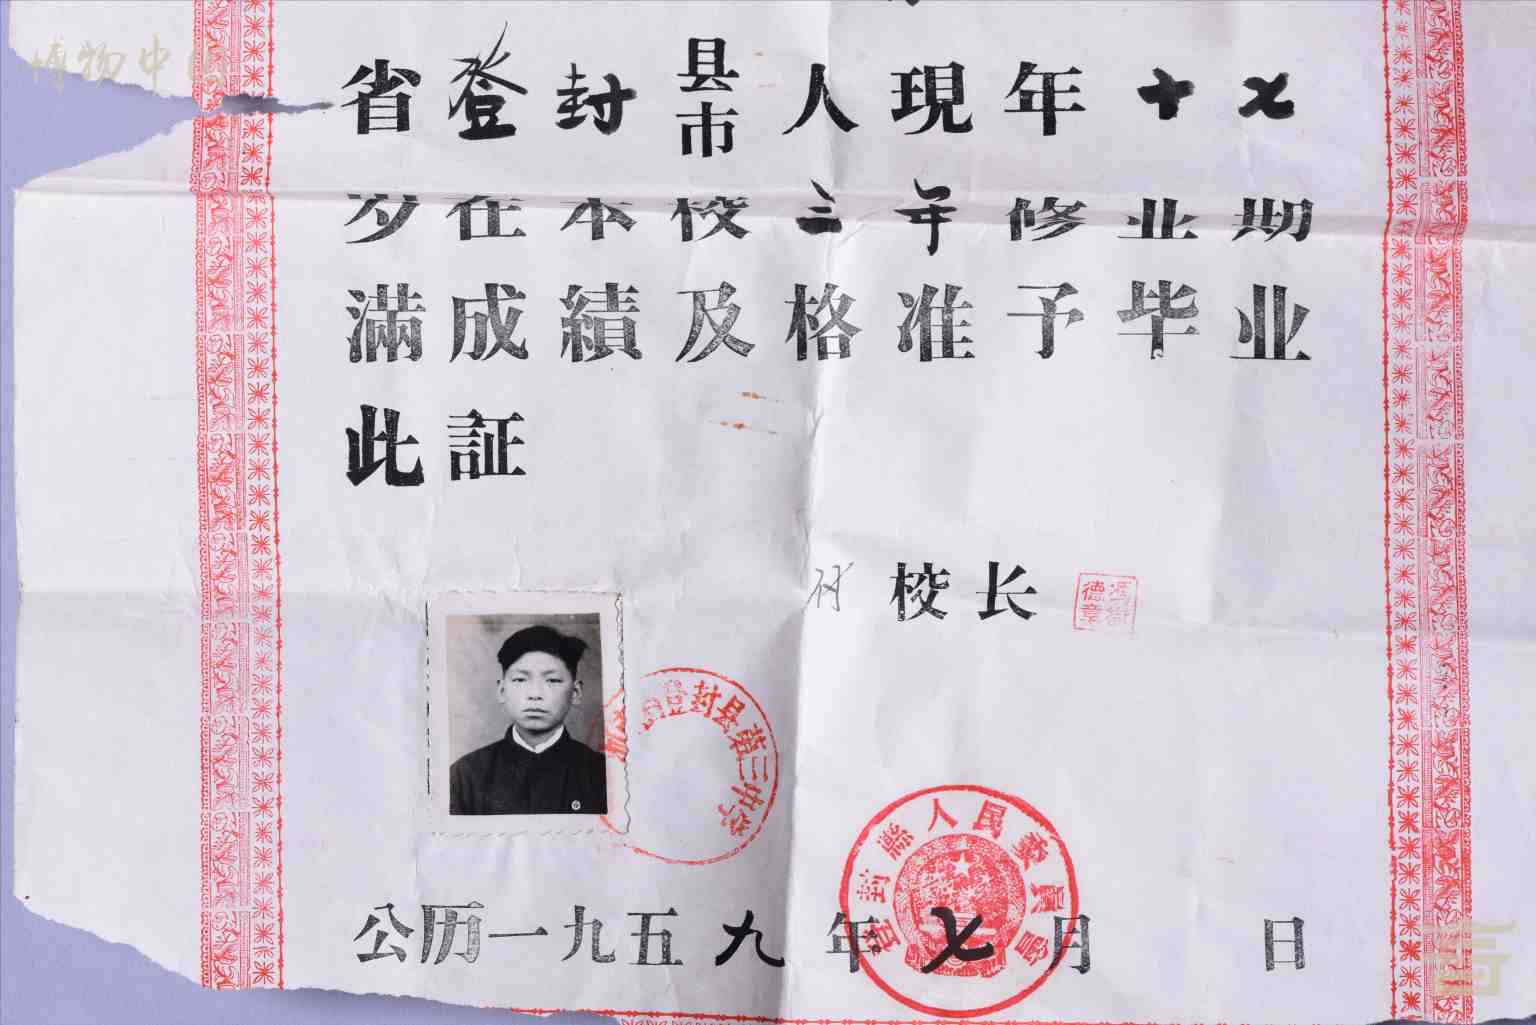 博物中国
省登封县市人現年十七
岁在本校三年修业期
滿成績及格准予毕业
此証
付校长
德章
登封县第三中学
登封縣人民委員會
公历一九五九年七月 日